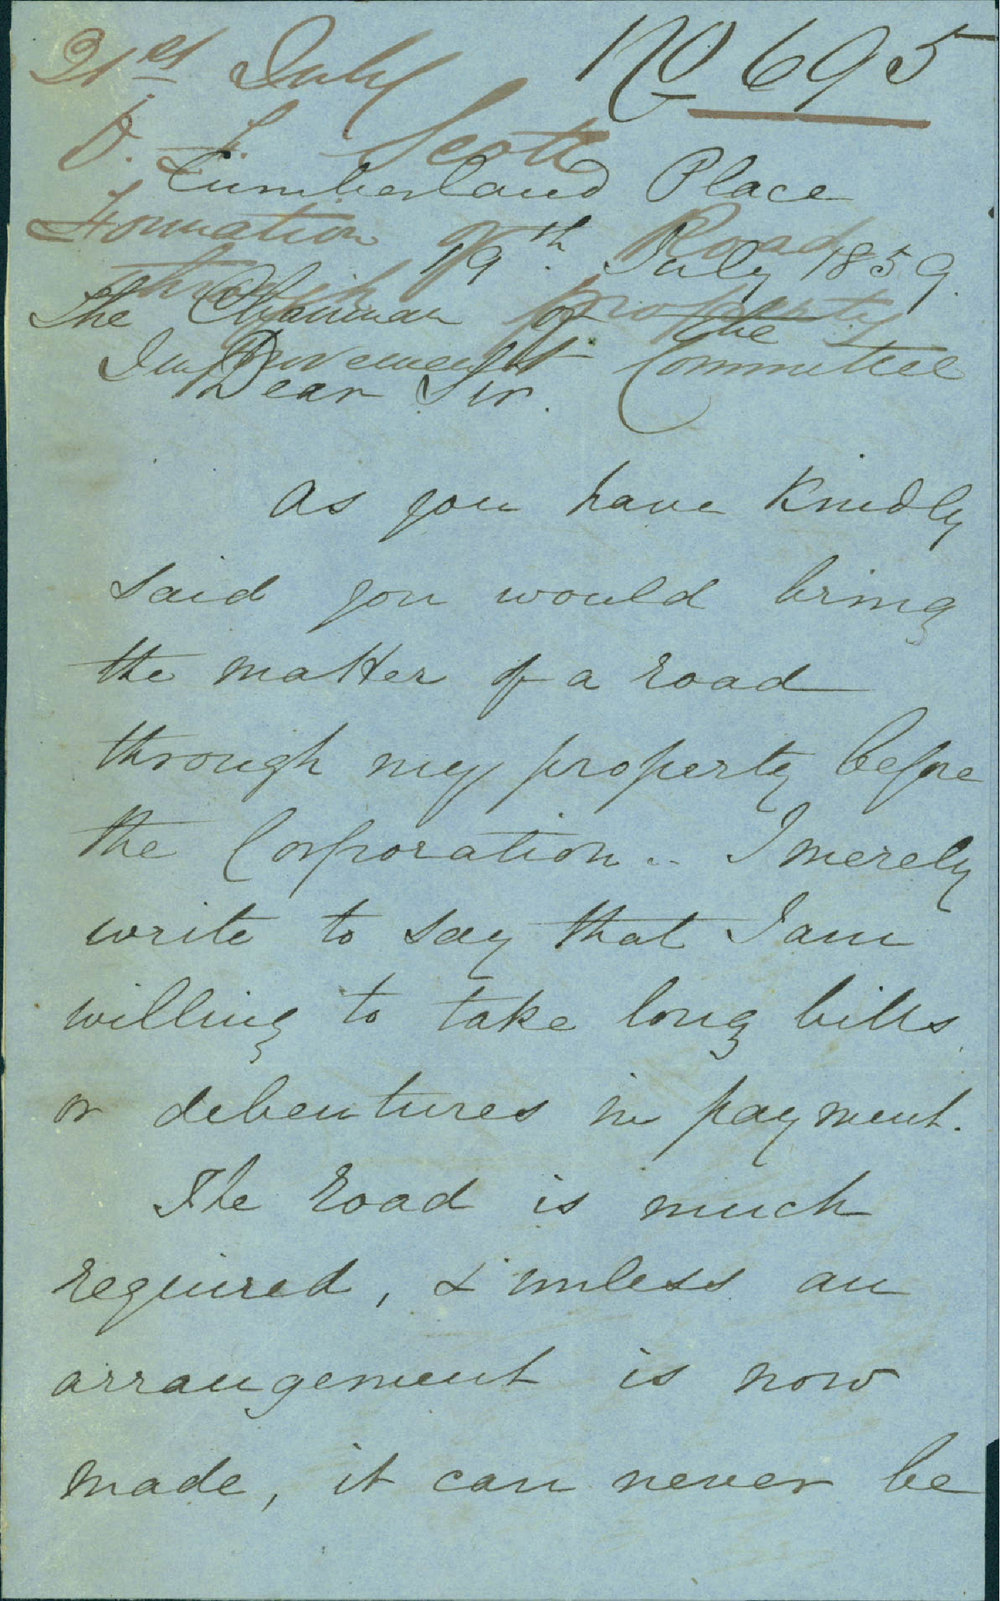 21st July
No 695
D. F. Scott
Cumberland Place
Formation of Road
19th July 1859.
through property
The Chairman of the
Improvement Committee
Dear Sir.
As you have Kindly
said you would bring
the matter of a road
through my property before
the Corporation.. I merely
write to say that I am
willing to take long bills
or debentures in payment.
The road is much
required, & unless an
arrangement is now
made, it can never be